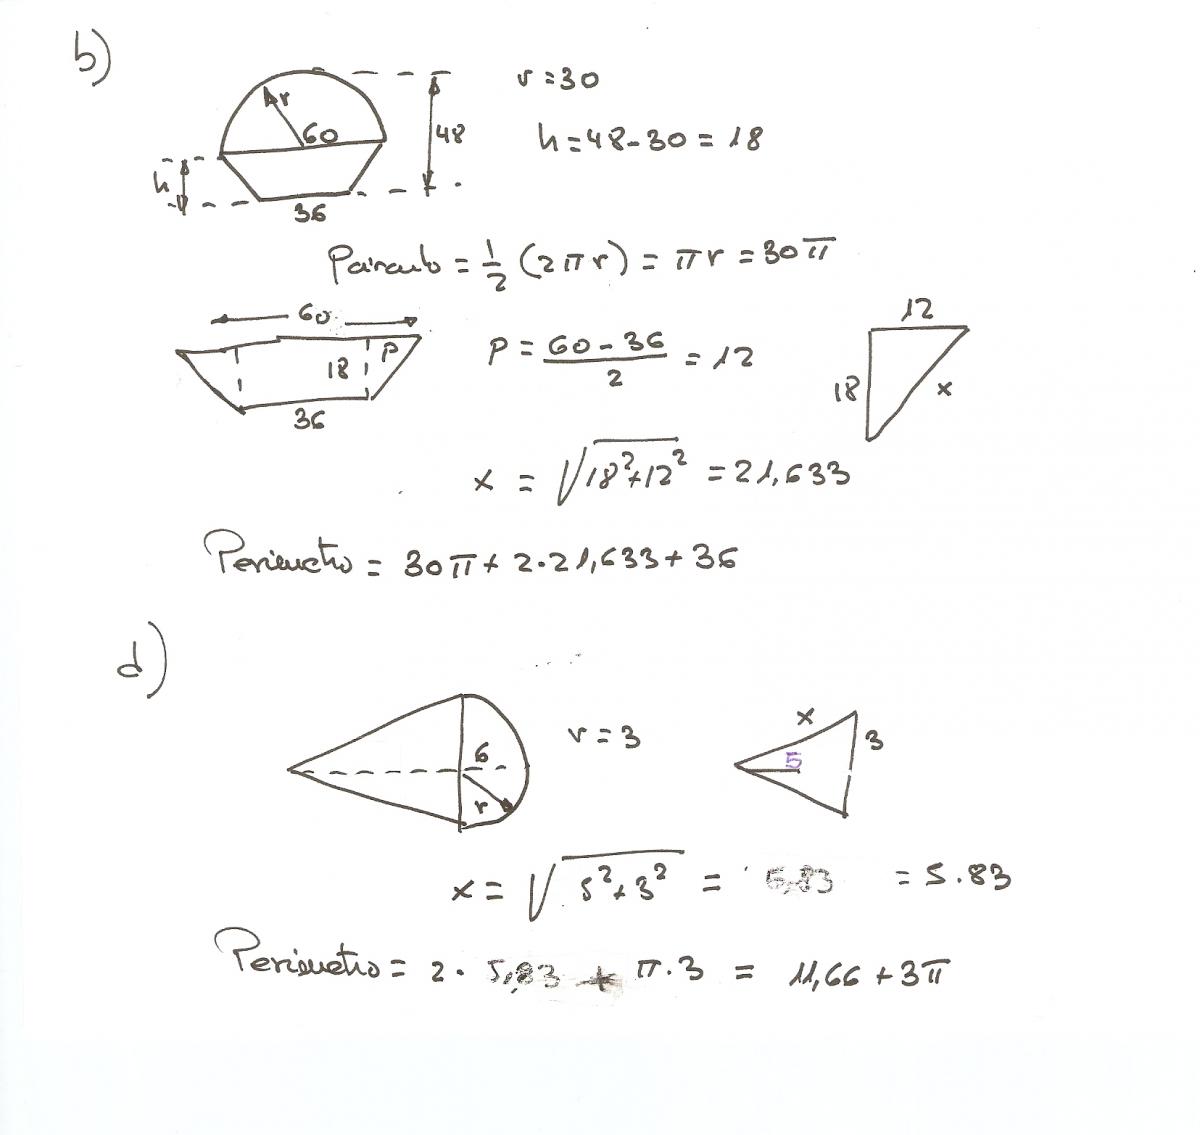 b)
r = 30
r
60
48
h = 48 - 30 = 18
h
36
Párculo = 1/2 (2πr) = πr = 30π
60
P
18
36
P = (60 - 36)/2 = 12
12
18
x
x = √(18² + 12²) = 21,633
Perímetro = 30π + 2·21,633 + 36
d)
6
r
r = 3
x
3
5
x = √(5² + 3²) = 5,83 = 5.83
Perímetro = 2 · 5,83 + π·3 = 11,66 + 3π